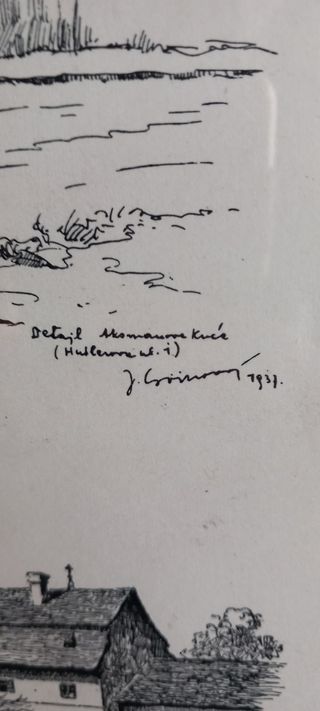 Detajl Aksmanove kuće
(Hutlerova ul. 1)
J. 1937.